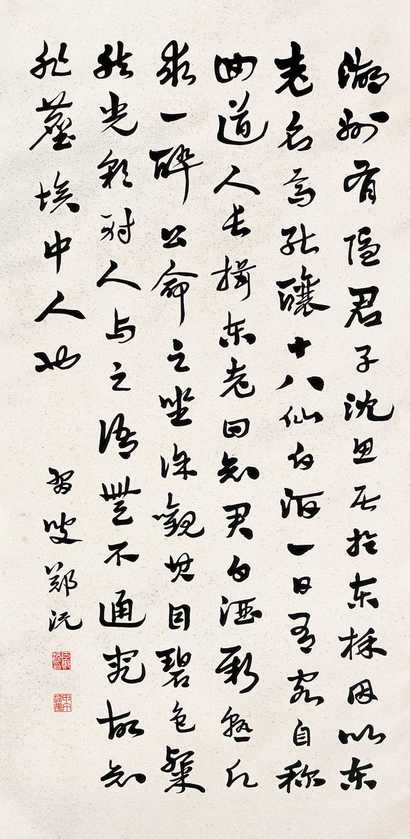 湖州有隱君子沈思居於東林因以東
老名焉能釀十八仙白酒一日有客自稱
回道人長揖東老曰知君白酒新熟乞
求一醉公命之坐徐觀其目碧色粲
然光彩射人與之語無不通究故知
非塵埃中人也
習叟鄭沅